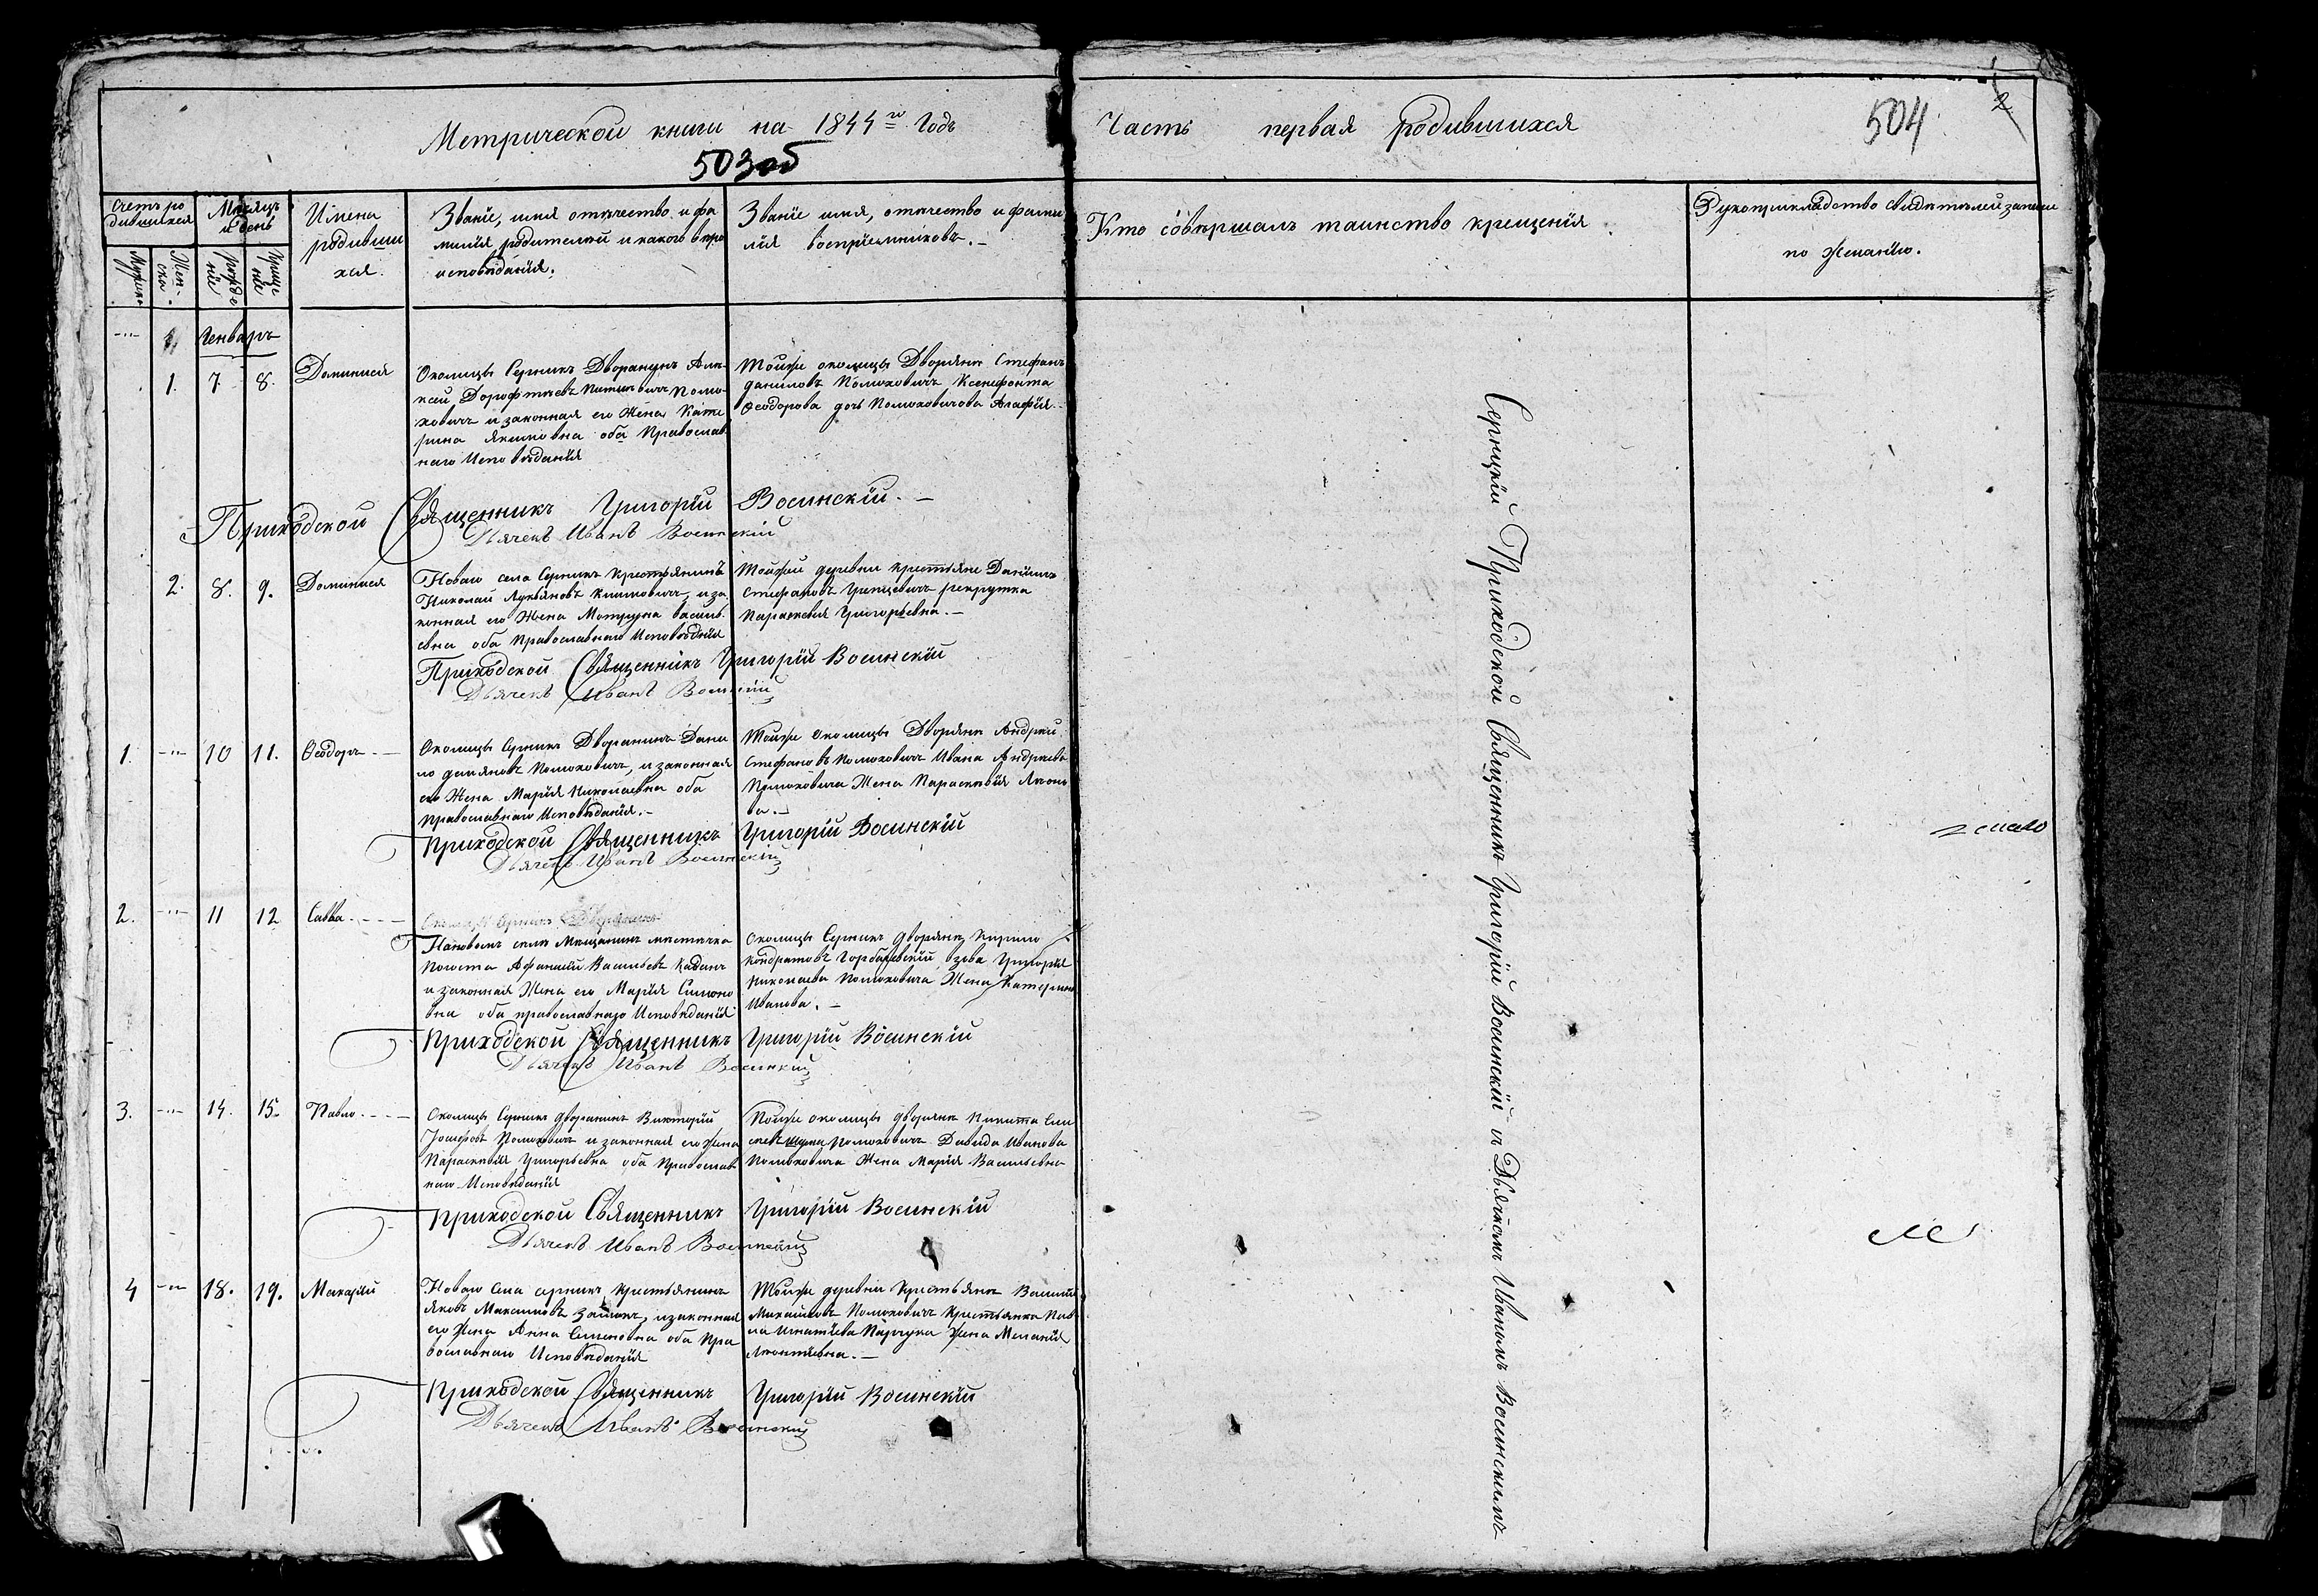 Метрической книги на 1844го Годъ
503об
Часть первая родившихся
504
2
Счетъ ро
дившихся
Мужеска
Жен-
ска
Месяцъ
и день
рожде
нїе
Креще
нїе
Имена
родивши
хся.
Званїе, имя отечество и фа
милїя родителей и какого вѣро
исповѣданїя.
Званїе имя, отечество и фами
лїя воспрїемниковъ.
Кто совершалъ таинство крещенїя
Рукоприкладство свидѣтелей записи
по желанїю.
Генварь
1. 7. 8. Доминикея
Околицы Серникъ Дворянинъ Але
ксей Дорофѣевъ Полю-
ховичъ и законная его Жена Кате
рина Якимовна оба Православ
наго Исповѣданїя
Тойже околицы Дворяне Стефанъ
Даниловъ Полюховичъ Ксенофонта
Ѳеодорова дочь Полюховичова Агафїя
Приходской Священникъ Григорїй Восинскїй.
Дьячекъ Иванъ Восинскїй
2. 8. 9. Доминикея
Новаго села Серникъ Крестьянинъ
Николай Лукьяновъ Климовичъ, и за
конная его Жена Мотруна Василь
евна оба Православнаго Исповѣданїя
Тойжей деревни крестьяне Данїилъ
Стефановъ рекрутка
Параскевїя Григорьевна.
Приходской Священникъ Григорїй Восинскїй
Дьячекъ Иванъ Восинскїй
1. 10 11. Ѳеодоръ
Околицы Серникъ Дворянинъ Дани
ло Демяновъ Полюховичъ, и законная
его Жена Марїя Николаевна оба
Православнаго Исповѣданїя.
Тойже Околицы Дворяне Андрей
Стефановъ Полюховичъ Ивана Андреева
Полюховича Жена Параскевїя
ва.
Приходской Священникъ Григорїй Восинскїй
Дьячекъ Иванъ Восинскїй
2. 11 12 Савва
Околицы Серникъ Дворянинъ
Новомъ селѣ Мещанинъ мѣстечка
Погоста Афанасїй Васильевъ
и законная Жена его Марїя Симоно
вна оба православнаго Исповѣданїя
Околицы Серникъ Дворяне Кирило
Кондратовъ Горбачевскїй вдова Григорїя
Николаева Полюховича Жена Катерина
Иванова.
Приходской Священникъ Григорїй Восинскїй
Дьячекъ Иванъ Восинскїй
3. 14. 15. Павло
Околицы Серникъ Дворянинъ Викторїй
Іосифовъ Полюховичъ и законная его Жена
Параскевїя Григорьевна оба Православ
наго Исповѣданїя
Тойже околицы дворяне Никита
Полюховичъ Давида Иванова
Полюховича Жена Марїя Васильевна
Приходской Священникъ Григорїй Восинскїй
Дьячекъ Иванъ Восинскїй
4 18. 19. Макарїй
Новаго Села Серникъ Крестьянинъ
Яковъ Максимовъ и законная
его Жена Анна Семеновна оба Пра
вославнаго Исповѣданїя
Тойже деревни Крестьяне Василїй
Михайловъ Полюховичъ Крестьянка Пав
ла Игнатїева Жена Меланїя
Леонтїевна.
Приходской Священникъ Григорїй Восинскїй
Дьячекъ Иванъ Восинскїй
Серницкїй Приходской Священникъ Григорїй Восинскїй съ Дьячкомъ Иваномъ Восинскимъ